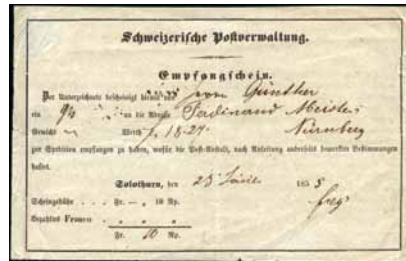 Schweizerische Postverwaltung.
Empfangschein.
Der Unterzeichnete bescheinigt hiemit von Günther
ein an die Adresse Ferdinand Meister
Gewicht Werth f. 18.24. Nürnberg
zur Spedition empfangen zu haben, wofür die Post-Anstalt, nach Anleitung anderseits bemerkter Bestimmungen
haftet.
Solothurn, den 25 185 8
Scheingebühr . . . Fr. — „ 10 Rp.
Bezahltes Franco . . „ „ „
Fr. 10 Rp.